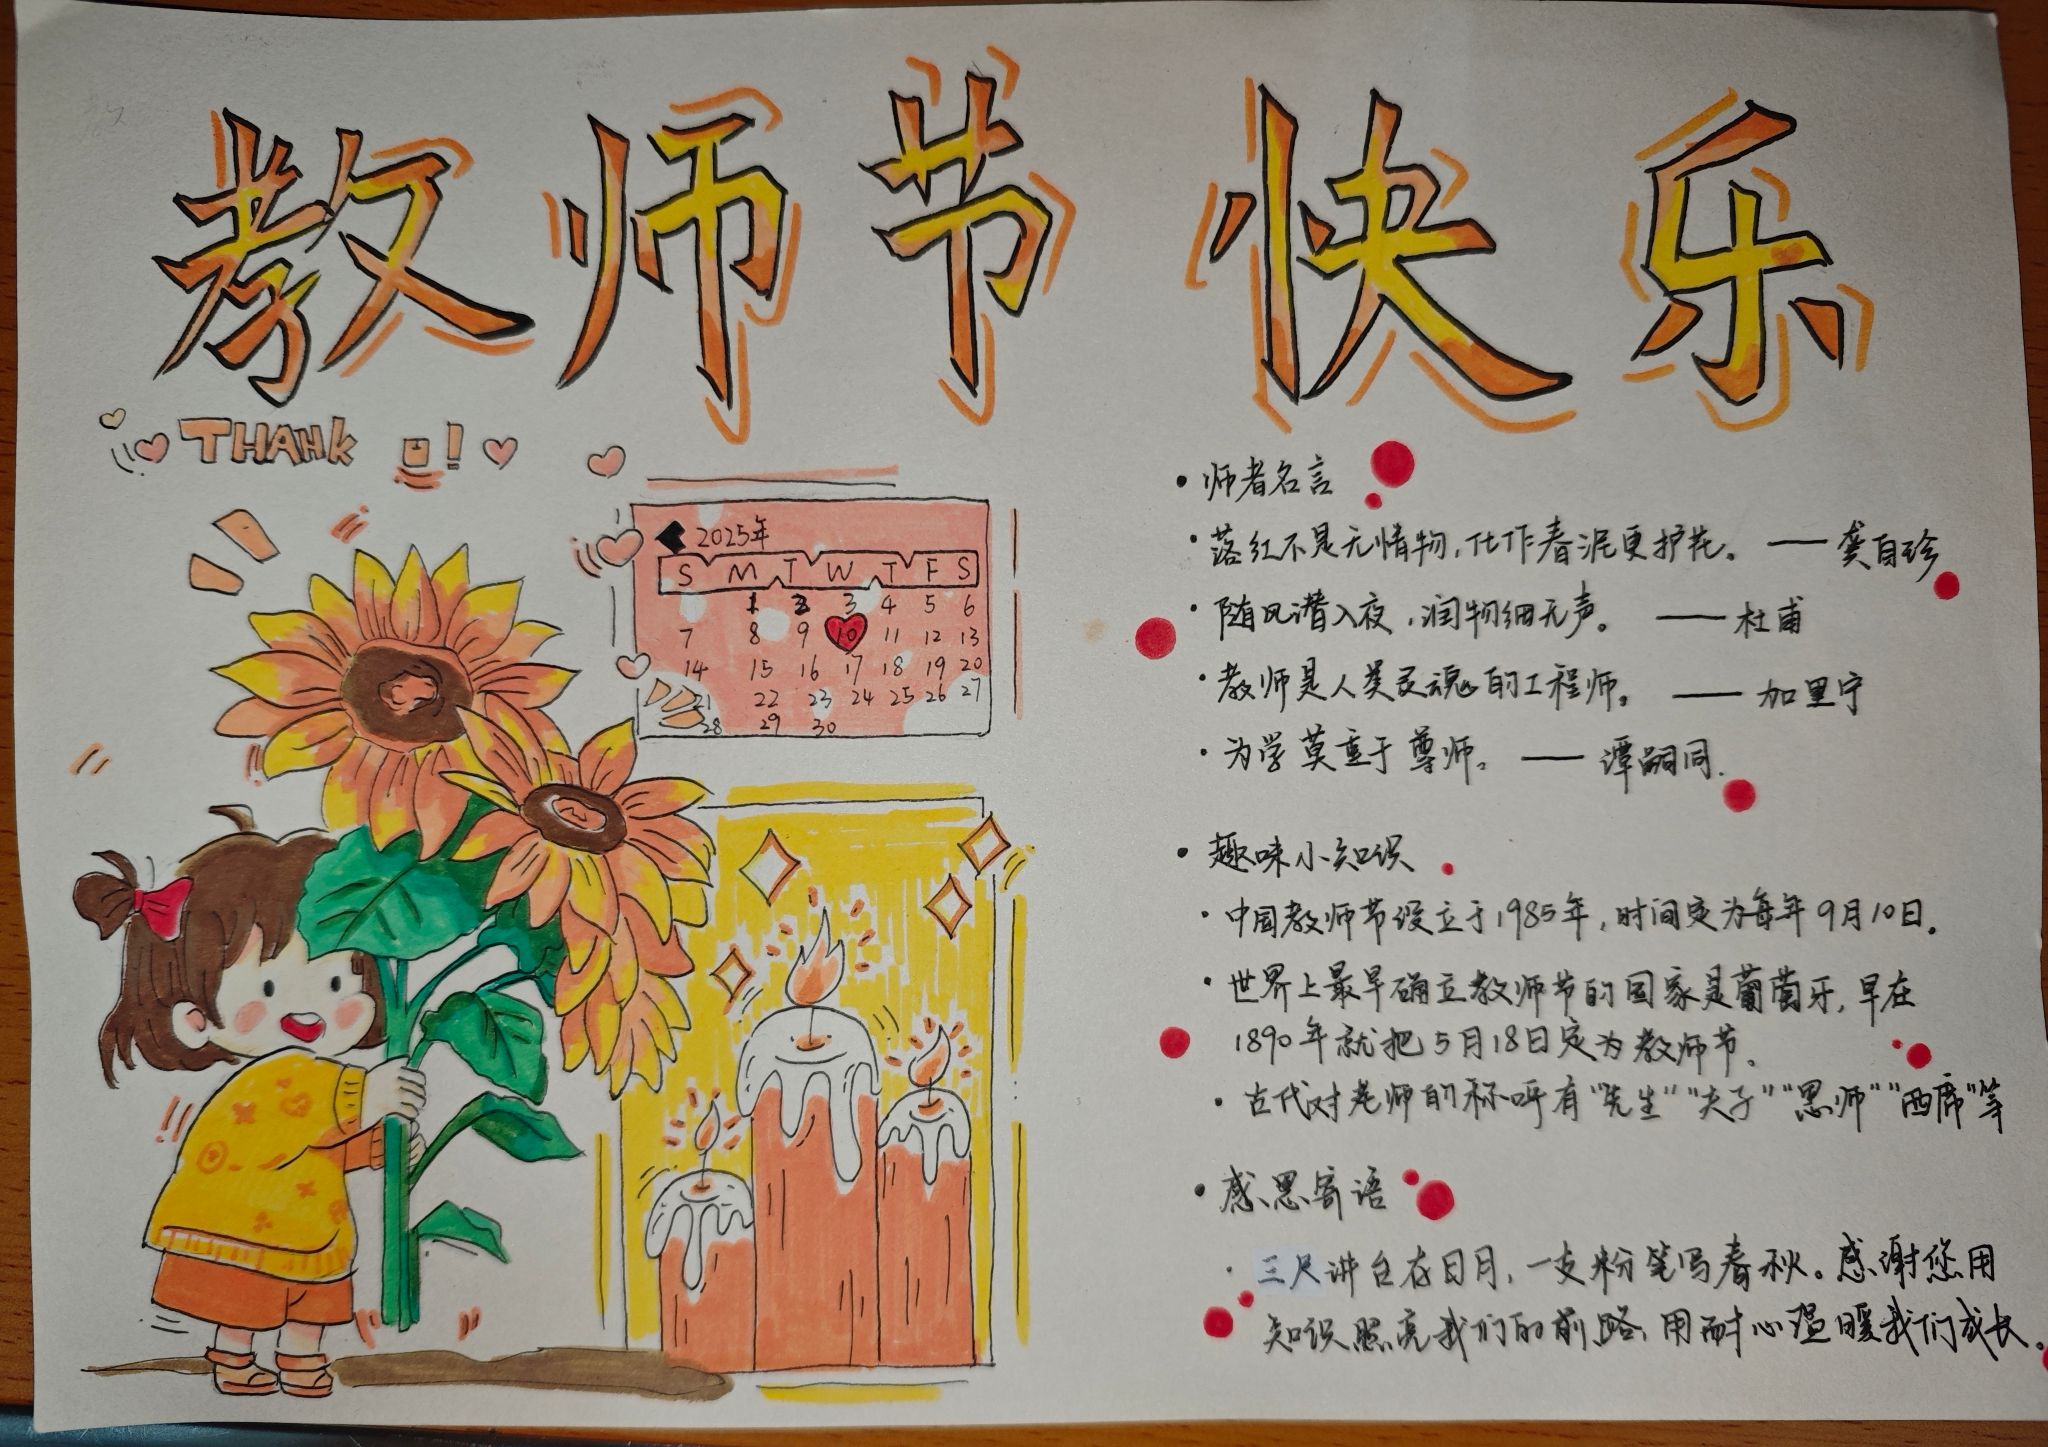 教师节快乐
THANK U!
2025年
S M T W T F S
1 2 3 4 5 6
7 8 9 10 11 12 13
14 15 16 17 18 19 20
21 22 23 24 25 26 27
28 29 30
·师者名言
·落红不是无情物，化作春泥更护花。——龚自珍
·随风潜入夜，润物细无声。——杜甫
·教师是人类灵魂的工程师。——加里宁
·为学莫重于尊师。——谭嗣同.
·趣味小知识
·中国教师节设立于1985年，时间定为每年9月10日。
·世界上最早确立教师节的国家是葡萄牙，早在
1890年就把5月18日定为教师节。
·古代对老师的称呼有"先生""夫子""恩师""西席"等
·感恩寄语
·三尺讲台存日月，一支粉笔写春秋。感谢您用
知识照亮我们的前路，用耐心温暖我们成长。